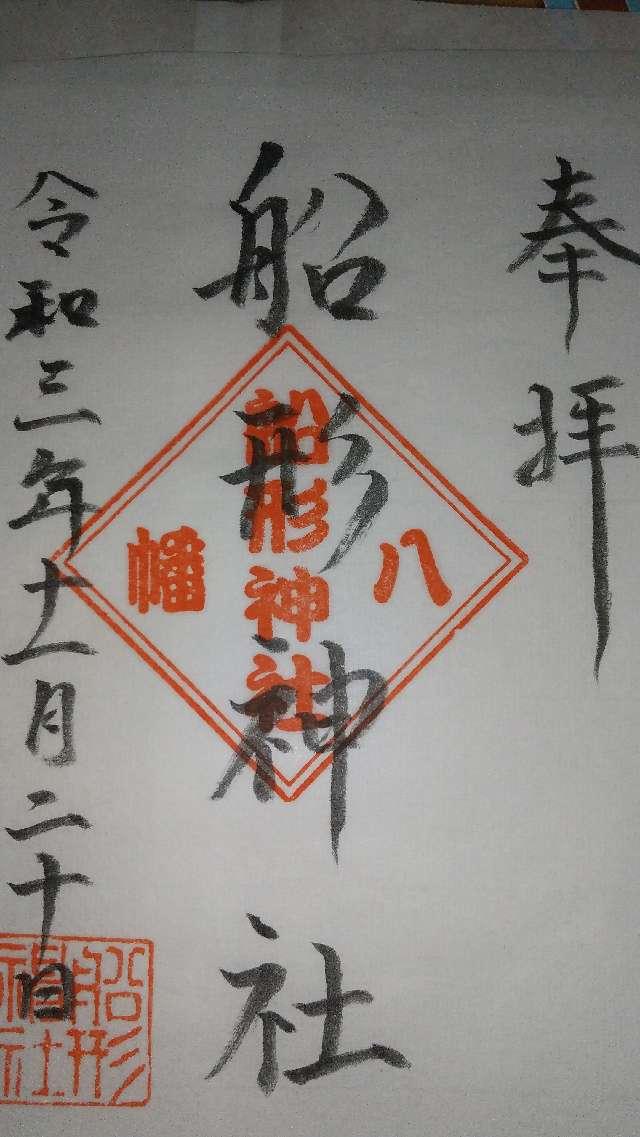 奉拝
八
船形神社
船形神社
幡
令和三年十一月二十日
船形
神社